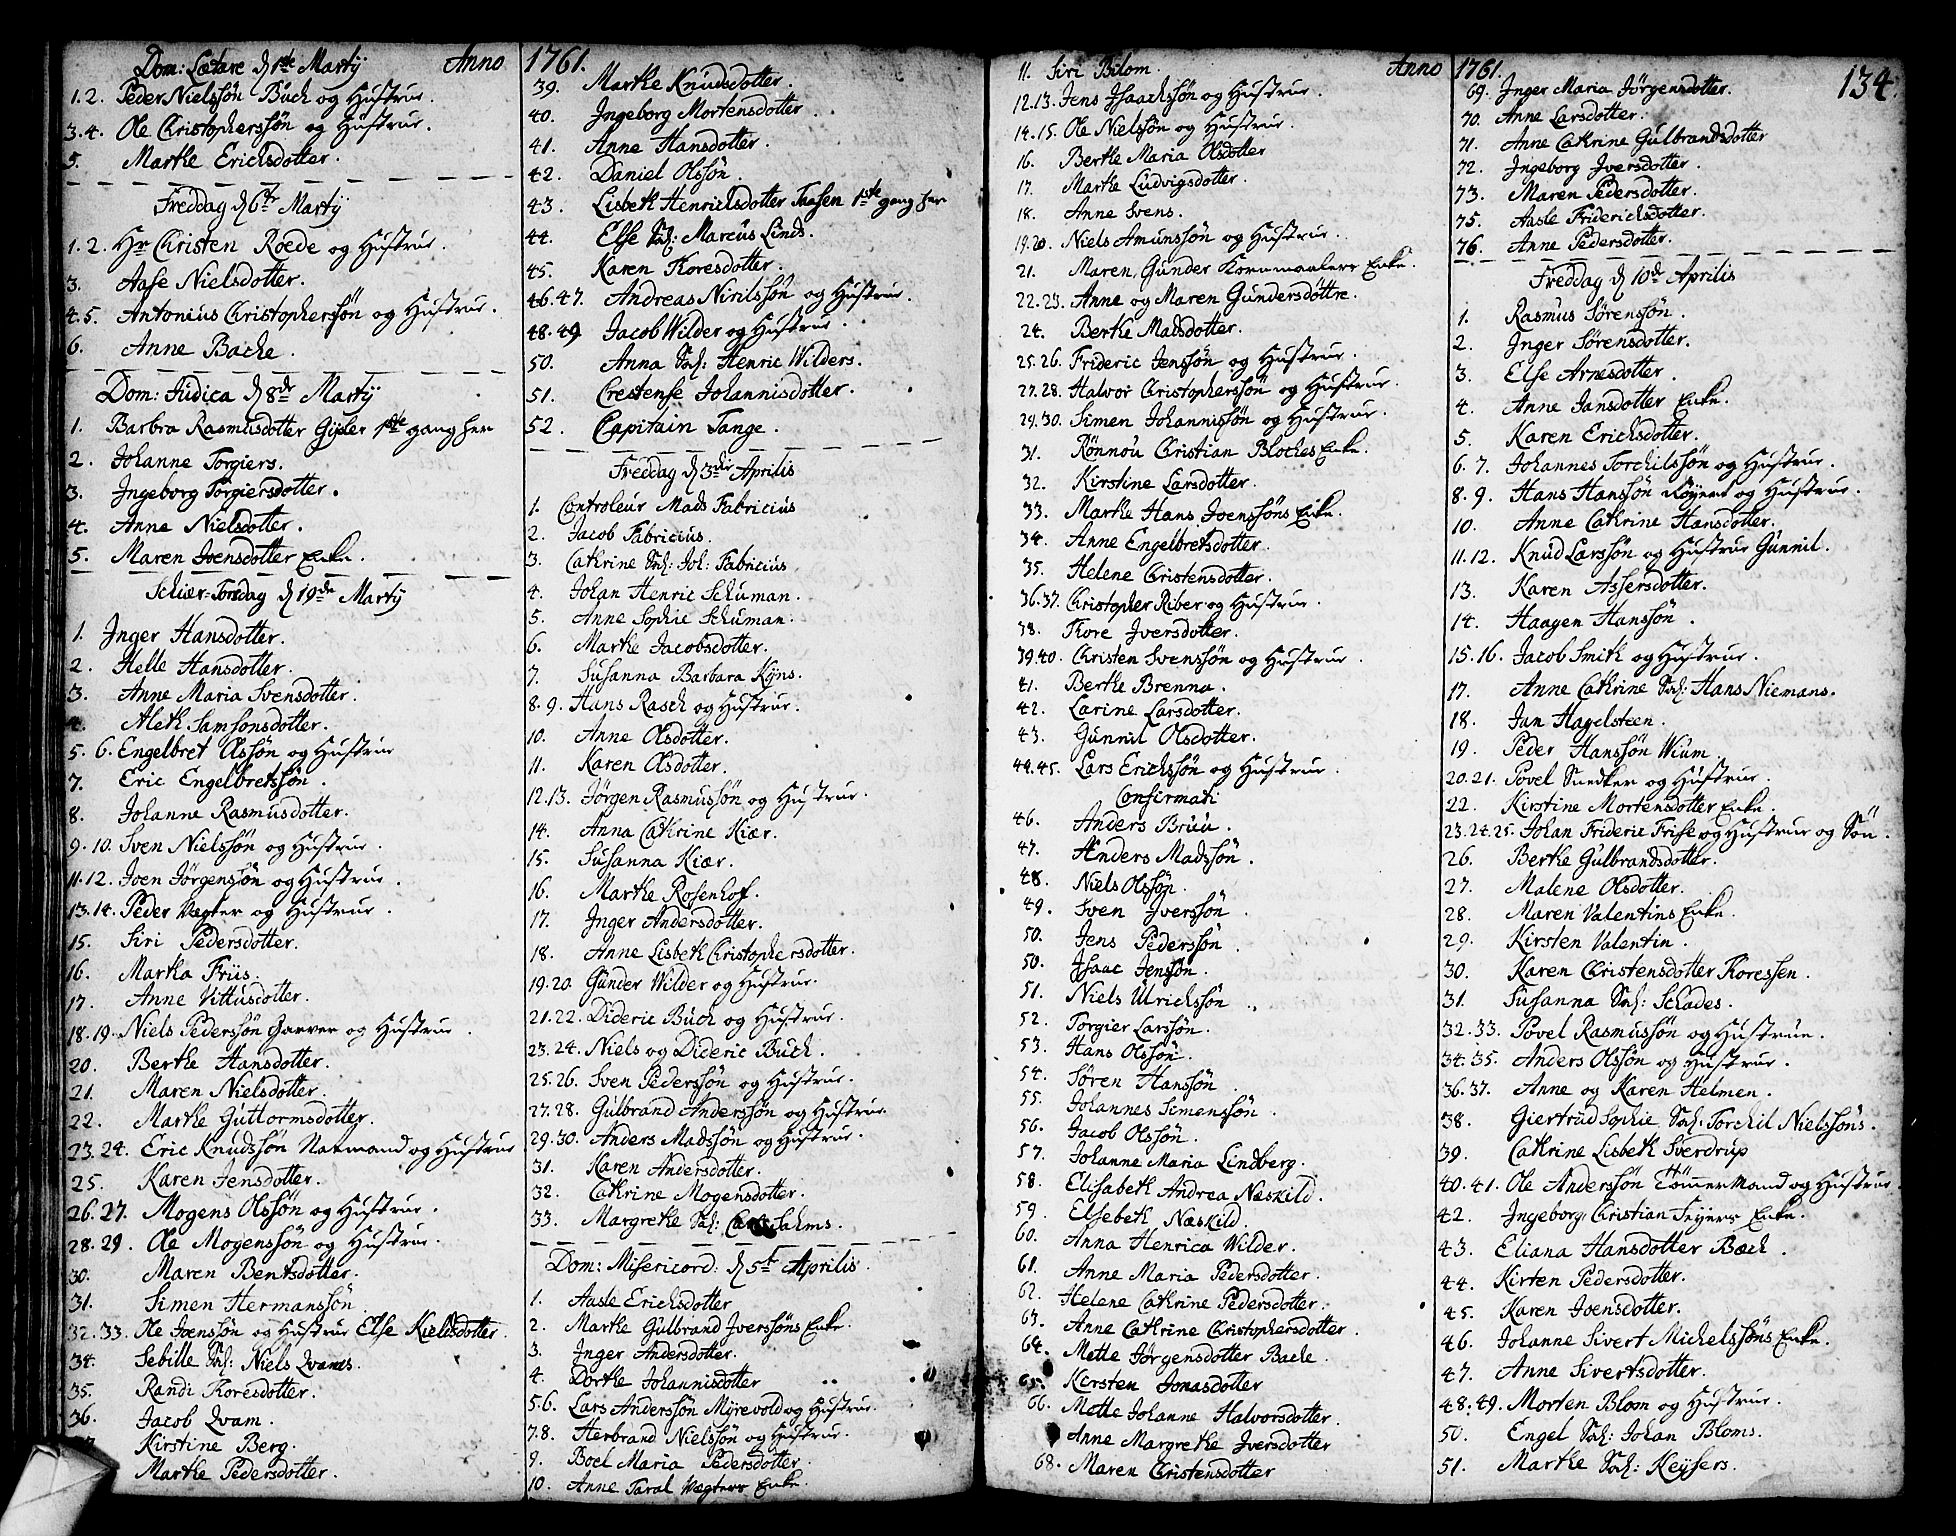 Dom: Lætare d 1ste Martij Anno
1.2. Peder Nielssøn Buch og Hustrue.
3.4. Ole Christopherssøn og Hustrue.
5. Marthe Erichsdotter.
Freddag d 6te Martij
1.2. Hr Christen Roede og Hustrue.
3. Aase Nielsdotter.
4.5. Antonius Christopherssøn og Hustrue.
6. Anne Bache.
Dom: Judica d 8de Martij
1. Barbra Rasmusdotter 1ste gang her
2. Johanne Torgiers.
3. Ingeborg Torgiersdotter.
4. Anne Nielsdotter.
5. Maren Joensdotter Enke.
Schiær-Torsdag d 19de Martij
1. Inger Hansdotter.
2. Helle Hansdotter.
3. Anne Maria Svensdotter.
4. Aleth Samsonsdotter.
5.6. Engelbret Olssøn og Hustrue
7. Eric Engelbretssøn.
8. Johanne Rasmusdotter.
9.10. Sven Nielssøn og Hustrue.
11.12. Joen Jørgenssøn og Hustrue.
13.14. Peder Vægter og Hustrue.
15. Siri Pedersdotter.
16. Martha Friis.
17. Anne Vittusdotter.
18.19. Niels Pederssøn Garver og Hustrue.
20. Berthe Hansdotter.
21. Maren Nielsdotter.
22. Marthe Guttormsdotter.
23.24. Eric Knudssøn Natmand og Hustrue
25. Karen Jensdotter.
26.27. Mogens Olssøn og Hustrue.
28.29. Ole Mogenssøn og Hustrue.
30. Maren Bentsdotter.
31. Simen Hermanssøn.
32.33. Ole Joenssøn og Hustrue Else Kieldsdotter.
34. Sebille Sal: Niels Qvams.
35. Randi Thoresdotter.
36. Jacob Qvam.
Kirstine Berg.
Marthe Pedersdotter.
1761.
39. Marthe Knudsdotter.
40. Ingeborg Mortensdotter.
41. Anne Hansdotter.
42. Daniel Olssøn.
43. Lisbeth Henrichsdotter Taasen 1ste gang her
44. Else Sal: Marcus Linds.
45. Karen Thoresdotter.
46.47. Andreas Nirilssøn og Hustrue.
48.49. Jacob Wilder og Hustrue.
50. Anna Sal: Henric Wilders.
51. Crestense Johannisdotter.
52. Capitain Tange.
Freddag d 3die Aprilis
1. Controleur Mads Fabricius
2. Jacob Fabricius.
3. Cathrine Sal: Joh: Fabricius
4. Johan Henric Schuman.
5. Anne Sophie Schuman.
6. Marthe Jacobsdotter.
7. Susanna Barbara Kijns.
8.9. Hans Rasch og Hustrue.
10. Anne Olsdotter.
11. Karen Olsdotter.
12.13. Jørgen Rasmussøn og Hustrue.
14. Anna Cathrine Kiær.
15. Susanna Kiær.
16. Marthe Rosenhof.
17. Inger Andersdotter.
18. Anne Lisbeth Christophersdotter.
19.20. Gunder Wilder og Hustrue.
21.22. Dideric Buch og Hustrue.
23.24. Niels og Dideric Buch.
25.26. Sven Pederssøn og Hustrue.
27.28. Gulbrand Anderssøn og Hustrue.
29.30. Anders Madssøn og Hustrue.
31. Karen Andersdotter.
32. Cathrine Mogensdotter.
33. Margrethe Sal: Salms.
Dom: Misericord: d 5te Aprilis.
1. Aasle Erichsdotter
2. Marthe Gulbrand Iverssøns Enke.
3. Inger Andersdotter.
4. Dorthe Johannisdotter
5.6. Lars Anderssøn Myrevold og Hustrue.
7.8. Herbrand Nielssøn og Hustrue.
9. Boel Maria Pedersdotter.
10. Anne Taral Vægters Enke.
11. Siri Bilom. Anno
12.13. Jens Isaachssøn og Hustrue.
14.15. Ole Nielssøn og Hustrue.
16. Berthe Maria Olsdotter
17. Marthe Ludvigsdotter.
18. Anne Svens.
19.20. Niels Amunssøn og Hustrue.
21. Maren, Gunder Kornmaalers Enke.
22.23. Anne og Maren Gundersdøttre.
24. Berthe Madsdotter.
25.26. Frideric Jenssøn og Hustrue.
27.28. Halvor Christopherssøn og Hustrue.
29.30. Simen Johannissøn og Hustrue.
31. Rönnou Christian Bloches Enke.
32. Kirstine Larsdotter.
33. Marthe Hans Joenssøns Enke.
34. Anne Engelbretsdotter.
35. Helene Christensdotter.
36.37. Christopher Riber og Hustrue.
38. Thore Iversdotter.
39.40. Christen Svenssøn og Hustrue.
41. Berthe Brenna.
42. Larine Larsdotter.
43. Gunnil Olsdotter.
44.45. Lars Erichssøn og Hustrue.
Confirmati
46. Anders Bruu.
47. Anders Madssøn.
48. Niels Olssøn.
49. Sven Iverssøn.
50. Jens Pederssøn.
50. Isaac Jenssøn.
51. Niels Ulrichssøn.
52. Torgier Larssøn.
53. Hans Olssøn.
54. Søren Hanssøn.
55. Johannes Simenssøn.
56. Jacob Olssøn.
57. Johanne Maria Lindberg.
58. Elisabeth Andrea Næskild.
59. Elsebeth Næskild.
60. Anna Henrica Wilder.
61. Anne Maria Pedersdotter.
62. Helene Cathrine Pedersdotter.
63. Anne Cathrine Christophersdotter.
64. Mette Jørgensdotter Bache.
65. Kirsten Jonasdotter
66. Mette Johanne Halvorsdotter.
Anne Margrethe Iversdotter
68. Maren Christensdotter
1761. 134.
69. Inger Maria Jørgensdotter.
70. Anne Larsdotter.
71. Anne Cathrine Gulbrandsdotter
72. Ingeborg Iversdotter.
73. Maren Pedersdotter.
75. Aasle Friderichsdotter.
76. Anne Pedersdotter.
Freddag d 10de Aprilis
1. Rasmus Sørenssøn.
2. Inger Sørensdotter.
3. Else Arnesdotter.
4. Anne Jansdotter Enke.
5. Karen Erichsdotter.
6.7. Johannes Torchilssøn og Hustrue.
8.9. Hans Hanssøn og Hustrue.
10. Anne Cathrine Hansdotter.
11.12. Knud Larssøn og Hustrue Gunnil.
13. Karen Assersdotter.
14. Haagen Hanssøn.
15.16. Jacob Smith og Hustrue.
17. Anne Cathrine Sal: Hans Niemans.
18. Jan Hagelsteen.
19. Peder Hanssøn Wium.
20.21. Povel Snedker og Hustrue.
22. Kirstine Mortensdotter Enke.
23.24.25. Johan Frideric Frise og Hustrue og Søn.
26. Berthe Gulbrandsdotter.
27. Malene Olsdotter.
28. Maren Valentins Enke.
29. Kirsten Valentin.
30. Karen Christensdotter Thoressen.
31. Susanna Sal: Schades.
32.33. Povel Rasmussøn og Hustrue.
34.35. Anders Olssøn og Hustrue.
36.37. Anne og Karen Helmen.
38. Giertrud Sophie Sal: Torchil Nielssøns.
39. Cathrine Lisbeth Sverdrup
40.41. Ole Anderssøn Tömmermand og Hustrue.
42. Ingeborg, Christian Feijers Enke.
43. Eliana Hansdotter Bæch.
44. Kirten Pedersdotter.
45. Karen Joensdotter.
46. Johanne Sivert Michelssøns Enke.
47. Anne Sivertsdotter.
48.49. Morten Blom og Hustrue.
50. Engel Sal: Johan Bloms.
51. Marthe Sal: Keysers.